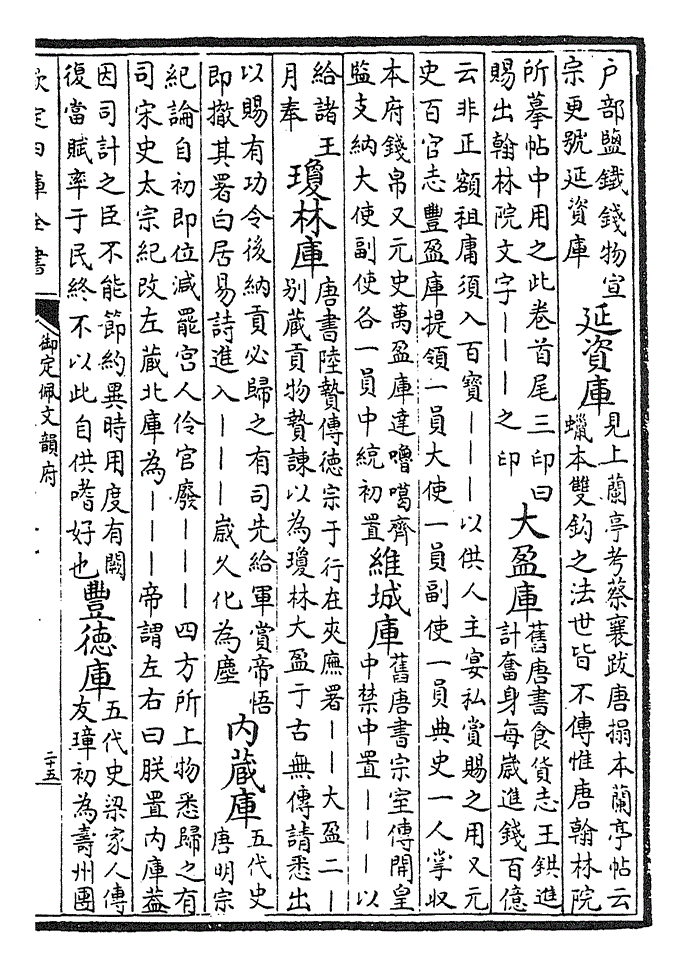 户部鹽鐵錢物宣
宗更號延資庫
延資庫
見上蘭亭考蔡襄跋唐搨本蘭亭帖云
蠟本雙鈎之法世皆不傳惟唐翰林院
所摹帖中用之此卷首尾三印曰
賜出翰林院文字｜｜｜之印
大盈庫
舊唐書食貨志王鉷進
計奮身每歲進錢百億
云非正額租庸須入百寶｜｜｜以供人主宴私賞賜之用又元
史百官志豐盈庫提領一員大使一員副使一員典史一人掌收
本府錢帛又元史萬盈庫達嚕噶齊
監支納大使副使各一員中統初置
維城庫
舊唐書宗室傳開皇
中禁中置｜｜｜以
給諸王
月奉
瓊林庫
唐書陸贄傳德宗于行在夾廡署｜｜大盈二｜
别藏貢物贄諫以為瓊林大盈于古無傳請悉出
以賜有功令後納貢必歸之有司先給軍賞帝悟
即撤其署白居易詩進入｜｜｜歲久化為塵
内藏庫
五代史
唐明宗
紀論自初即位減罷宫人伶官廢｜｜｜四方所上物悉歸之有
司宋史太宗紀改左藏北庫為｜｜｜帝謂左右曰朕置内庫蓋
因司計之臣不能節約異時用度有闕
復當賦率于民終不以此自供嗜好也
豐德庫
五代史梁家人傳
友璋初為壽州團
欽定四庫全書
御定佩文韻府
二十五